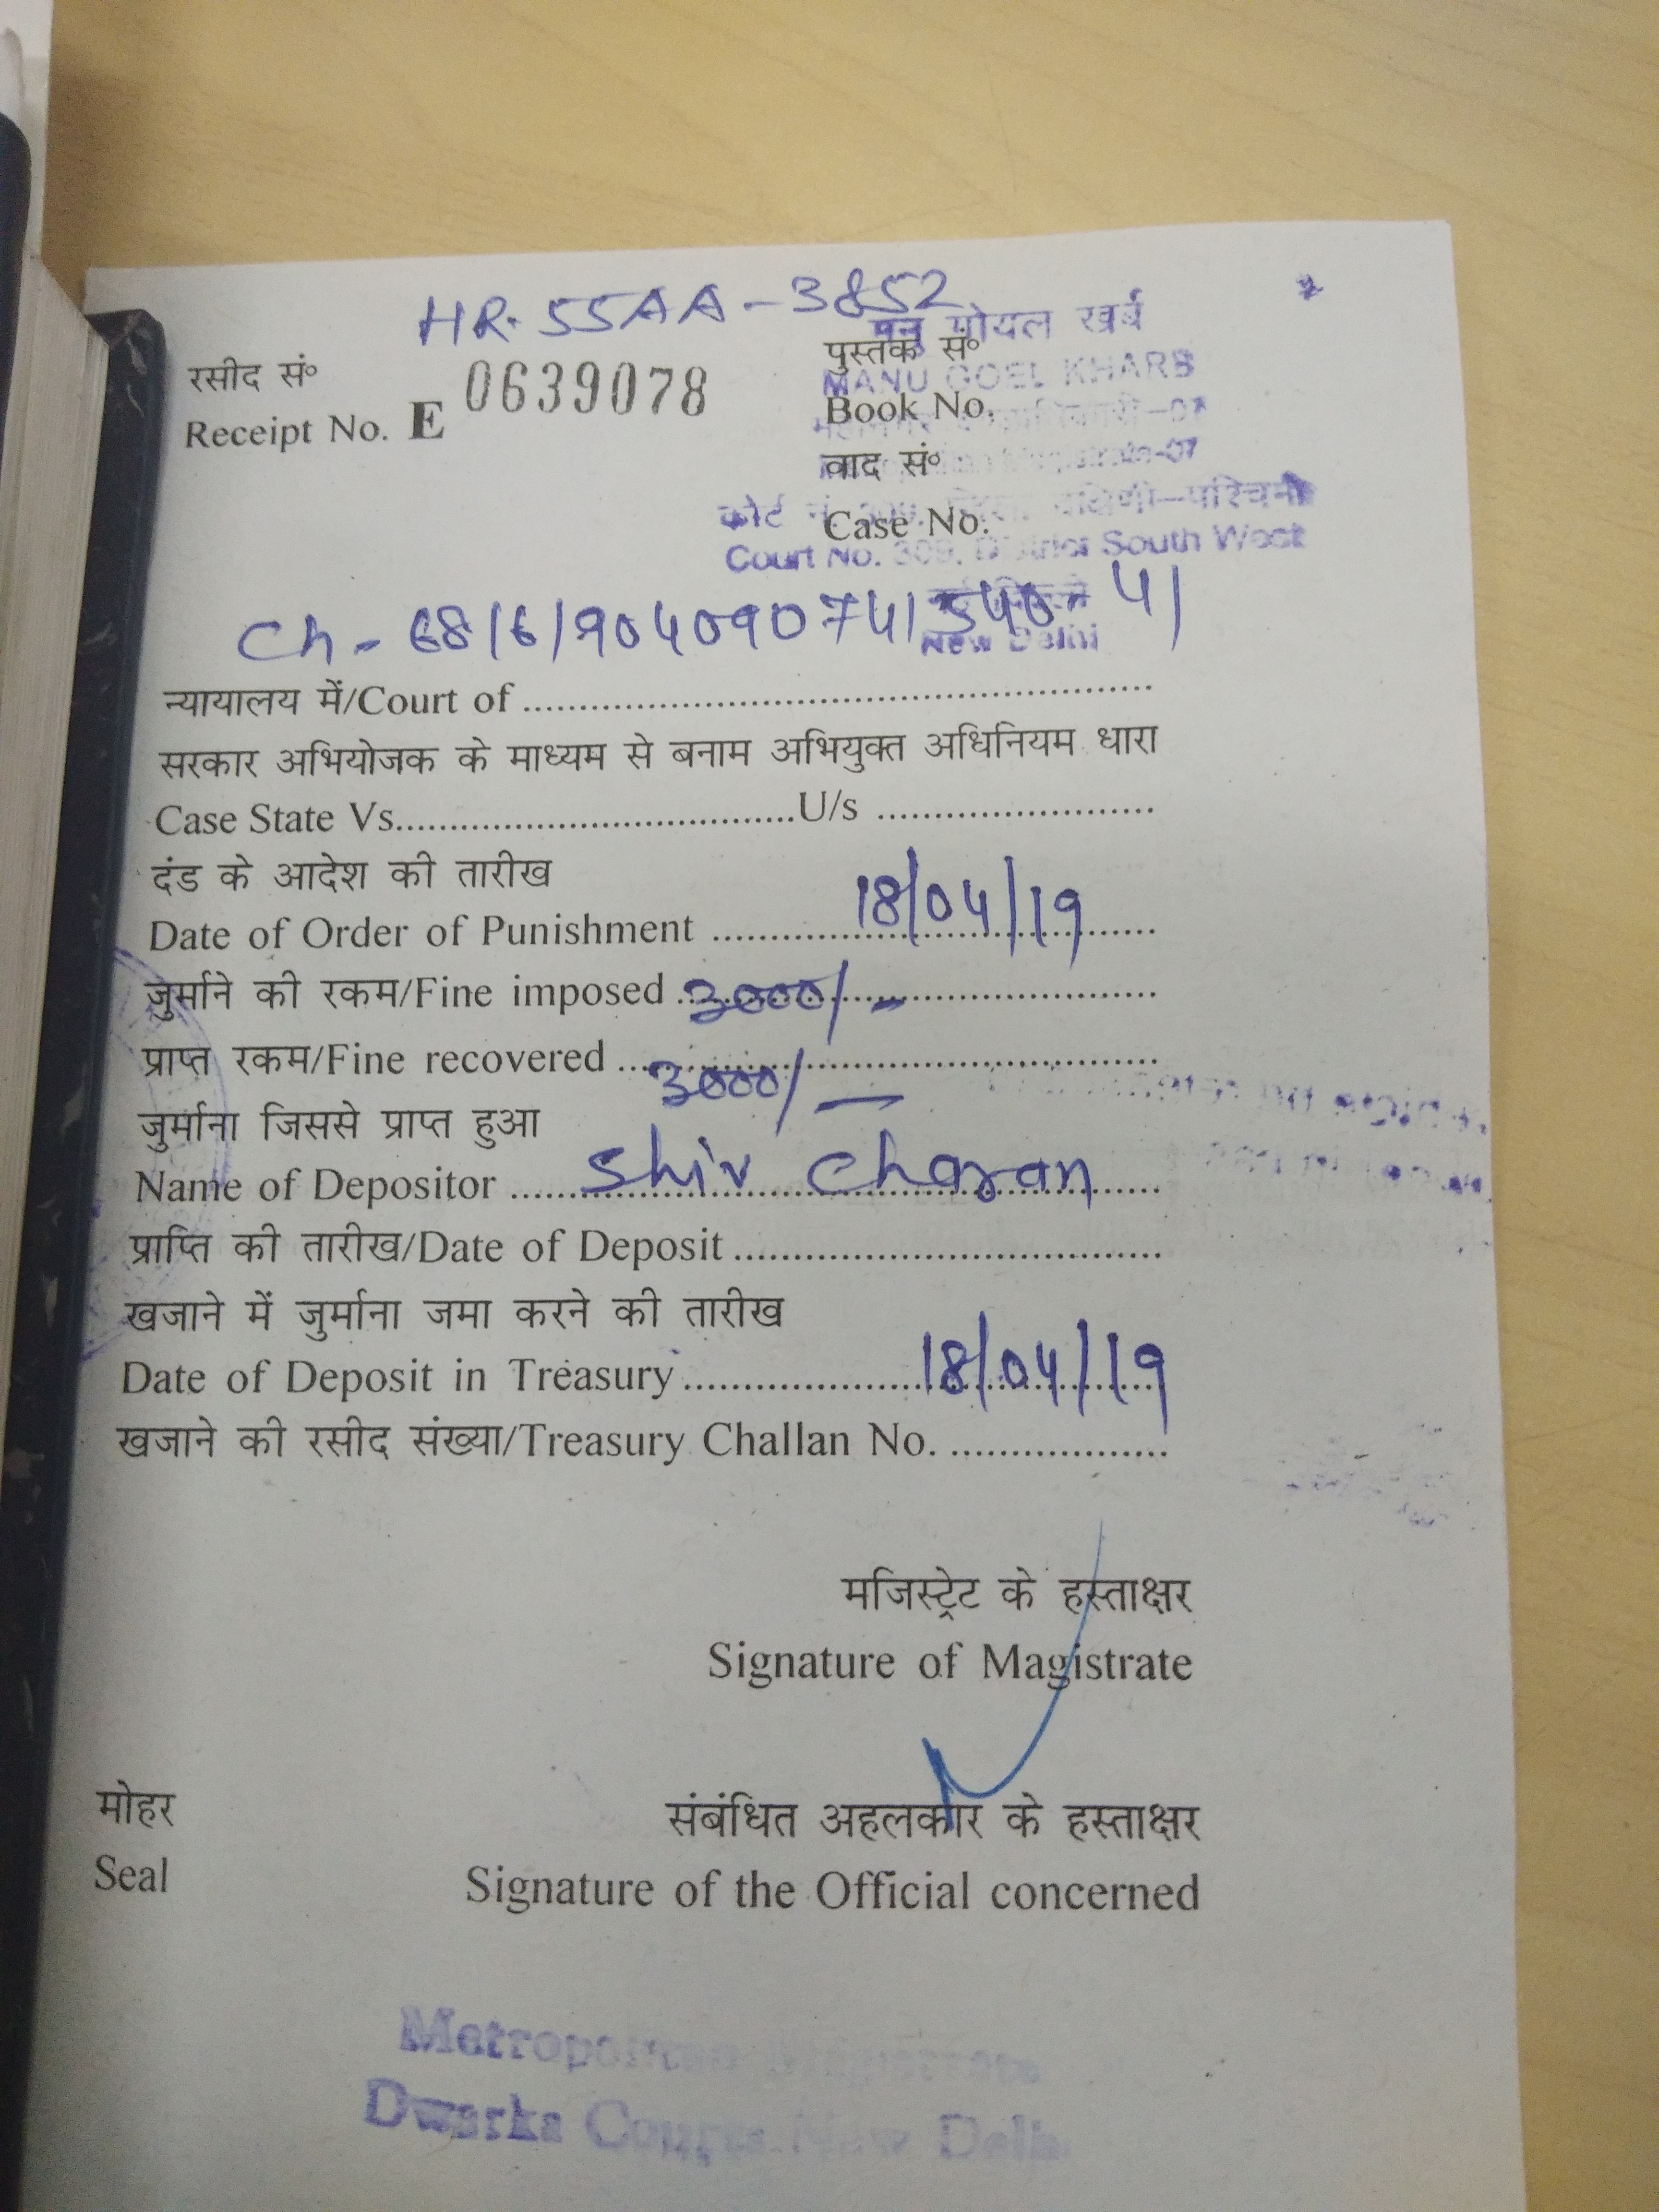 HR-55AA-3852
रसीद सं०
Receipt No. E 0639078
मनु गोयल खर्ब
पुस्तक सं०
MANU GOEL KHARB
Book No.
वाद सं०
कोर्ट दक्षिणी-पश्चिमी
Case No.
Court No. 309, District South West
New Delhi
Ch-
न्यायालय में/Court of ........................................................
सरकार अभियोजक के माध्यम से बनाम अभियुक्त अधिनियम धारा
Case State Vs......................................U/s ..........................
दंड के आदेश की तारीख
Date of Order of Punishment 18/04/19
जुर्माने की रकम/Fine imposed 3000/-
प्राप्त रकम/Fine recovered 3000/-
जुर्माना जिससे प्राप्त हुआ
Name of Depositor Shiv Charan
प्राप्ति की तारीख/Date of Deposit ......................................
खजाने में जुर्माना जमा करने की तारीख
Date of Deposit in Treasury 18/04/19
खजाने की रसीद संख्या/Treasury Challan No. ...................
मजिस्ट्रेट के हस्ताक्षर
Signature of Magistrate
मोहर
संबंधित अहलकार के हस्ताक्षर
Seal
Signature of the Official concerned
Metropolitan Magistrate
Dwarka Courts New Delhi